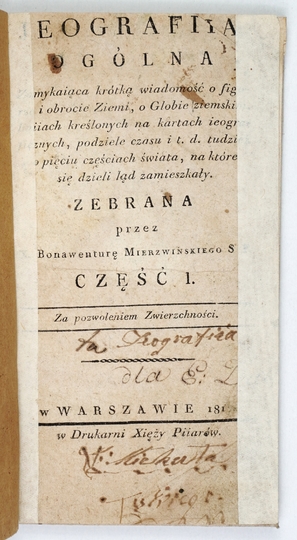 EOGRAFIIA
OGÓLNA
mykaiąca krótką wiadomość o fig
i obrocie Ziemi, o Globie ziemski
iiach kreślonych na kartach ieogr
znych, podziele czasu i t. d. tudzi
o pięciu częściach świata, na które
się dzieli ląd zamieszkały.
ZEBRANA
przez
Bonawenturę Mierzwińskiego S
CZĘŚĆ I.
Za pozwoleniem Zwierzchności.
ta Jeografiia
dla
w WARSZAWIE 181
w Drukarni Xięży Piiarów.